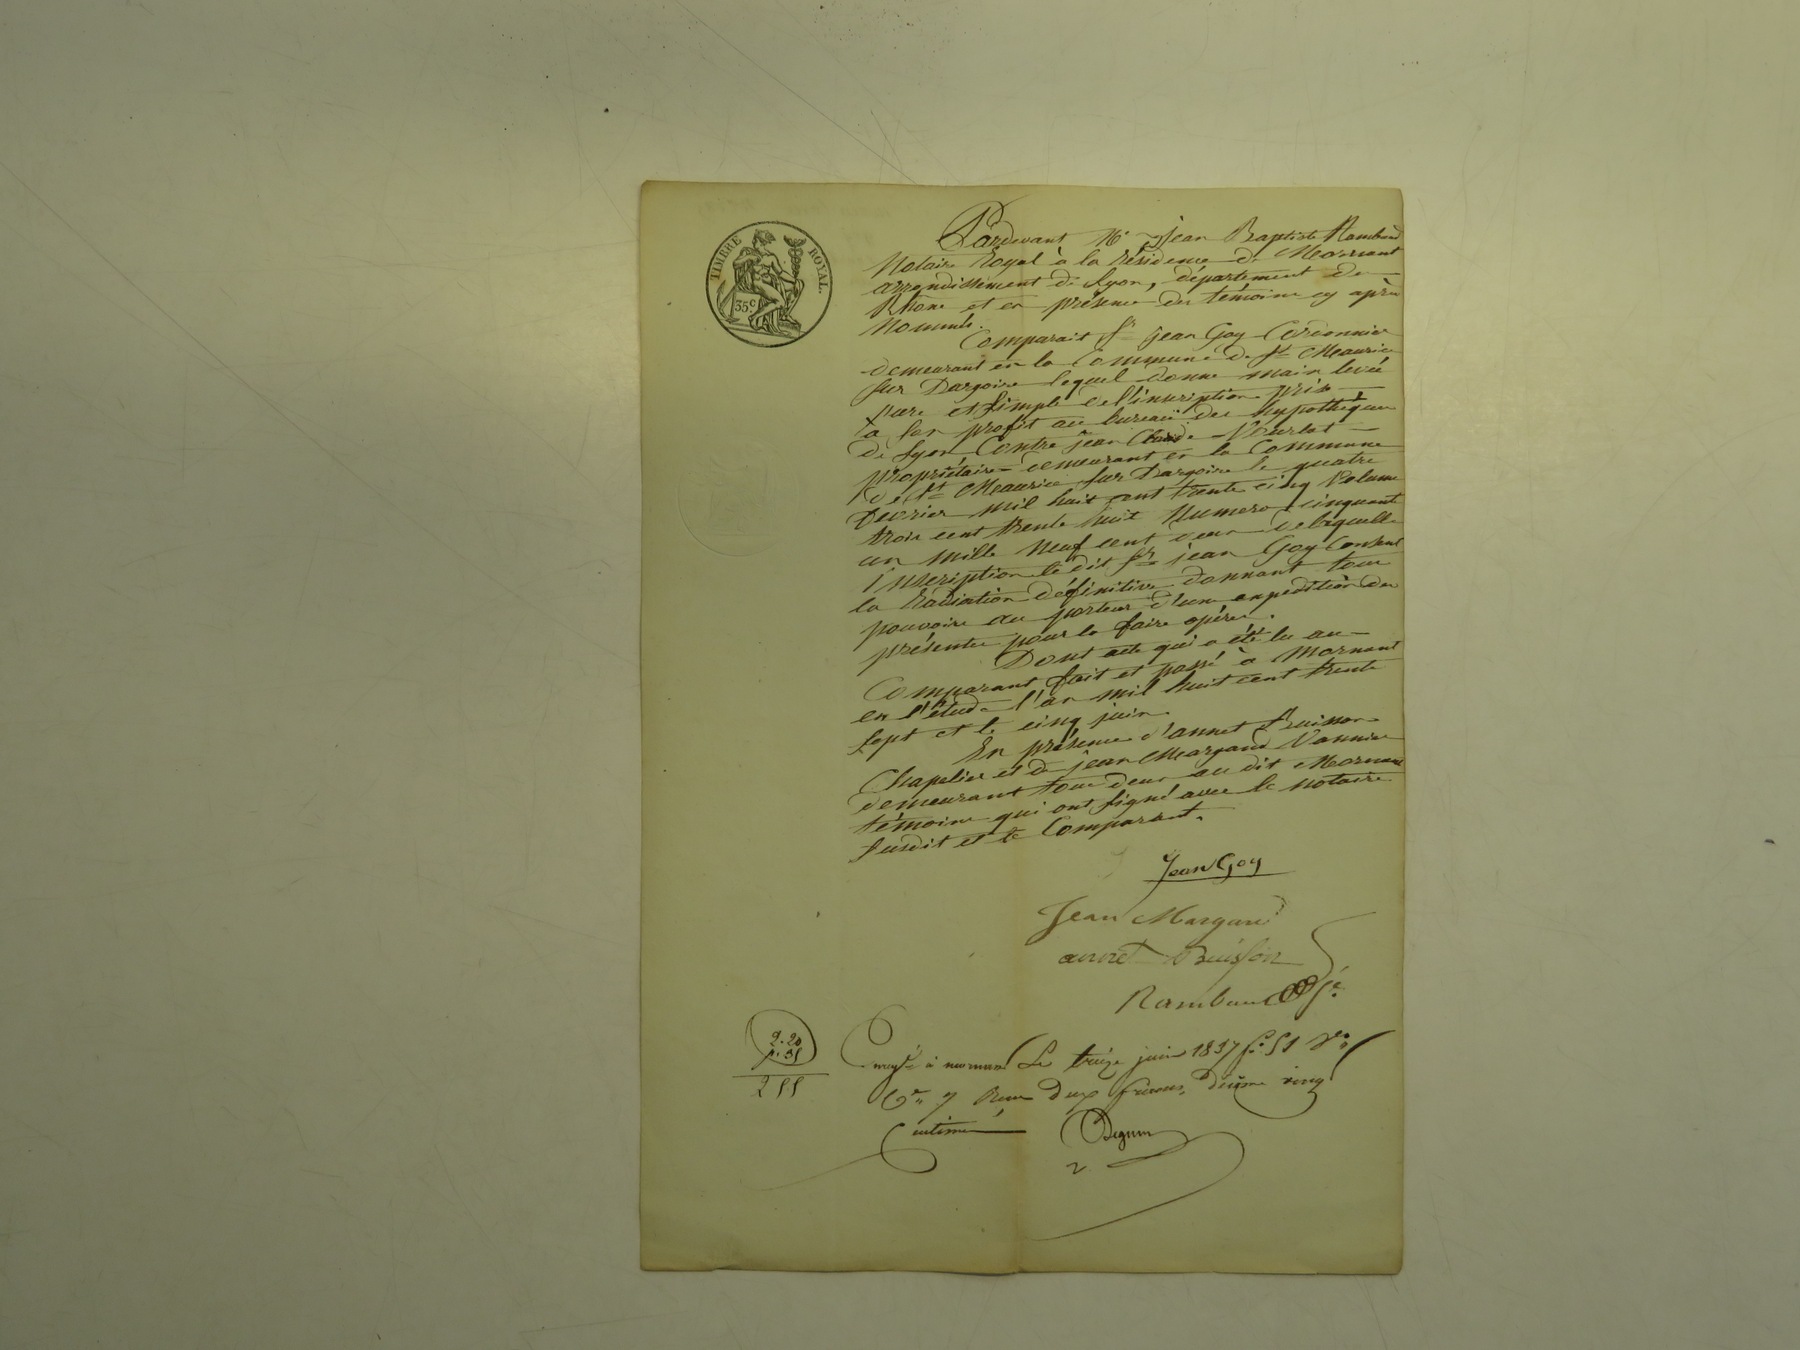 TIMBRE ROYAL.
35.c
Pardevant Me Jean Baptiste Rambaud
Notaire Royal à la résidence de Mornant
arrondissement de Lyon, département du
Rhône et en présence des témoins cy après
nommés.
Comparait Sr jean Goy Cordonnier
demeurant en la Commune de St Maurice
sur Dargoire lequel donne main levée
pure et simple de l'inscription prise
à son profit au bureau des hypothèques
de Lyon Contre jean Claude
propriétaire demeurant en la Commune
de St Maurice sur Dargoire le quatre
mil huit cent trente cinq Volume
trois cent trente huit Numero cinquante
un mille neuf cent deux de laquelle
inscription le dit Sr jean Goy Consent
la Radiation définitive donnant tous
pouvoirs au porteur d'une expédition des
présentes pour la faire opérer.
Dont acte qui a été lu au
Comparant fait et passé à Mornant
en l'étude l'an mil huit cent trente
sept et le cinq juin.
En présence d'annet Buisson
Chapelier et de jean Margand Vannier
demeurant tous deux au dit Mornant
témoins qui ont signé avec le notaire
susdit et le Comparant.
Jean Goy
Jean Margand
annet Buisson
Rambaud
2. 20
2 55
à mornant Le treize juin 1837 fo 51 Vo
Co 7 Reçu Deux francs, Décime vingt
Centimes